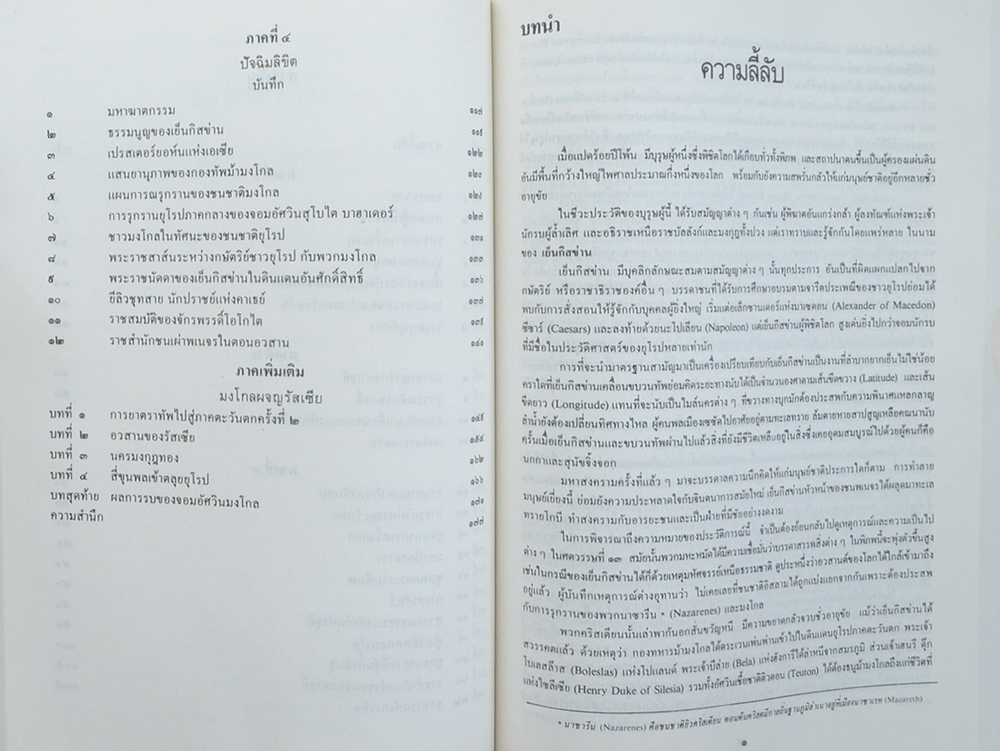 ภาคที่ ๔
ปัจฉิมลิขิต
บันทึก
๑ มหาฆาตกรรม ๑๑๘
๒ ธรรมนูญของเย็นกิสข่าน ๑๑๙
๓ เปรสเตอร์ยอห์นแห่งเอเซีย ๑๒๒
๔ แสนยานุภาพของกองทัพม้ามงโกล
๕ แผนการณรุกรานของชนชาติมงโกล
๖ การรุกรานยุโรปภาคกลางของจอมอัศวินสุโบไต บาฮาเดอร์ ๑๒๗
๗ ชาวมงโกลในทัศนะของชนชาติยุโรป ๑๓๑
๘ พระราชสาส์นระหว่างกษัตริย์ชาวยุโรป กับพวกมงโกล ๑๓๓
๙ พระราชนัดดาของเย็นกิสข่านในดินแดนอันศักดิ์สิทธิ์ ๑๓๖
๑๐ ยีลิวซุทสาย นักปราชญ์แห่งคาเธย์ ๑๓๗
๑๑ ราชสมบัติของจักรพรรดิ์โอโกได ๑๓๙
๑๒ ราชสำนักชนเผ่าพเนจรในตอนอวสาน ๑๔๑
ภาคเพิ่มเติม
มงโกลผจญรัสเซีย
บทที่ ๑ การยาตราทัพไปสู่ภาคตะวันตกครั้งที่ ๒ ๑๔๕
บทที่ ๒ อวสานของรัสเซีย ๑๕๔
บทที่ ๓ นครมงกุฎทอง ๑๖๒
บทที่ ๔ สี่ขุนพลเข้าตลุยยุโรป ๑๖๖
บทสุดท้าย ผลการรบของจอมอัศวินมงโกล ๑๗๑
ความสำนึก ๑๗๗
บทนำ
ความลี้ลับ
เมื่อแปดร้อยปีโพ้น มีบุรุษผู้หนึ่งซึ่งพิชิตโลกได้เกือบทั่วทั้งพิภพ และสถาปนาตนขึ้นเป็นผู้ครองแผ่นดิน
อันมีพื้นที่กว้างใหญ่ไพศาลประมาณกึ่งหนึ่งของโลก พร้อมกับยังความสพรั่นกลัวให้แก่มนุษย์ชาติอยู่อีกหลายชั่ว
อายุขัย
ในชีวะประวัติของบุรุษผู้นี้ ได้รับสมัญญาต่าง ๆ กันเช่น ผู้พิฆาตอันแกร่งกล้า ผู้ลงทัณฑ์แห่งพระเจ้า
นักรบผู้ล้ำเลิศ และอธิราชเหนือราชบัลลังก์และมงกุฎทั้งปวง แต่เราทราบและรู้จักกันโดยแพร่หลาย ในนาม
ของ เย็นกิสข่าน
เย็นกิสข่าน มีบุคลิกลักษณะสมตามสมัญญาต่าง ๆ นั้นทุกประการ อันเป็นที่ผิดแผกแปลกไปจาก
กษัตริย์ หรือราชาธิราชองค์อื่น ๆ บรรดาชนที่ได้รับการศึกษาอบรมตามจารีตประเพณีของชาวยุโรปย่อมได้
พบกับการสั่งสอนให้รู้จักกับบุคคลผู้ยิ่งใหญ่ เริ่มแต่อเล็กซานเดอร์แห่งมาเซดอน (Alexander of Macedon)
ซีซาร์ (Caesars) และลงท้ายด้วยนะโปเลียน (Napoleon) แต่เย็นกิสข่านผู้พิชิตโลก สูงเด่นยิ่งไปกว่าจอมนักรบ
ที่มีชื่อในประวัติศาสตร์ของยุโรปหลายเท่านัก
การที่จะนำมาตรฐานสามัญมาเป็นเครื่องเปรียบเทียบกับเย็นกิสข่านเป็นงานที่ลำบากยากเย็นไม่ใช่น้อย
คราใดที่เย็นกิสข่านเคลื่อนขบวนทัพย่อมคิดระยะทางนับได้เป็นจำนวนองศาตามเส้นขีดขวาง (Latitude) และเส้น
ขีดยาว (Longitude) แทนที่จะนับเป็นไมล์นครต่าง ๆ ที่ขวางทางบุกมักต้องประสพกับความพินาศแหลกลาญ
ลำน้ำยังต้องเปลี่ยนทิศทางไหล ผู้คนพลเมืองเซซัดไปอาศัยอยู่ตามทะเลทราย ล้มตายหายสาปสูญเหลือคณนานับ
ครั้นเมื่อเย็นกิสข่านและขบวนทัพผ่านไปแล้วสิ่งที่ยังมีชีวิตเหลืออยู่ในสิ่งซึ่งเคยอุดมสมบูรณ์ไปด้วยผู้คนก็คือ
นกกาและสุนัขจิ้งจอก
มหาสงครามครั้งที่แล้ว ๆ มาจะบรรดาลความนึกคิดให้แก่มนุษย์ชาติประการใดก็ตาม การทำลาย
มนุษย์เยี่ยงนี้ ย่อมยังความประหลาดใจกับจินตนาการสมัยใหม่ เย็นกิสข่านหัวหน้าของชนพเนจรได้ผลุดมาทะเล
ทรายโกบี ทำสงครามกับอารยะชนและเป็นฝ่ายที่มีชัยอย่างงดงาม
ในการพิจารณาถึงความหมายของประวัติการณ์นี้ จำเป็นต้องย้อนกลับไปดูเหตุการณ์และความเป็นไป
ต่าง ๆ ในศตวรรษที่ ๑๓ สมัยนั้นพวกมะหะหมัดได้มีความเชื่อมั่นว่าบรรดาสรรพสิ่งต่าง ๆ ในพิภพนี้จะพุ่งตัวขึ้นสูง
เช่นในกรณีของเย็นกิสข่านได้ก็ด้วยเหตุมหัศจรรย์เหนือธรรมชาติ ดูประหนึ่งว่าอวสานต์ของโลกได้ใกล้เข้ามาถึง
อยู่แล้ว ผู้บันทึกเหตุการณ์ต่างอุทานว่า ไม่เคยเลยที่ชนชาติอิสลามได้ถูกแบ่งแยกจากกันเพราะต้องประสพ
กับการรุกรานของพวกนาซารีน * (Nazarenes) และมงโกล
พวกคริสเตียนนั้นเล่าพากันอกสั่นขวัญหนี มีความขยาดกลัวจวบชั่วอายุขัย แม้ว่าเย็นกิสข่านได้
สวรรคตแล้ว ด้วยเหตุว่า กองทหารม้ามงโกลได้ตระเวนเพ่นพ่านเข้าไปในดินแดนยุโรปภาคตะวันตก พระเจ้า
โบเลสล๊าส (Boleslas) แห่งโปแลนด์ พระเจ้าบีล่าย (Bela) แห่งฮังการีได้ล่าหนีจากสมรภูมิ ส่วนเจ้าเฮนรี ดุ๊ก
แห่งไซลีเซีย (Henry Duke of Silesia) รวมทั้งอัศวินเชื้อชาติติวตอน (Teuton) ได้ต้องธนูม้ามงโกลถึงแก่ชีวิตที่
* นาซารีน (Nazarenes) คือชนชาติยิวคริสเตียน ตอนต้นคริสตมีภาถิ่นฐานภูมิลำเนาอยู่ที่เมืองนาซาเรท (Mazareth)
๑